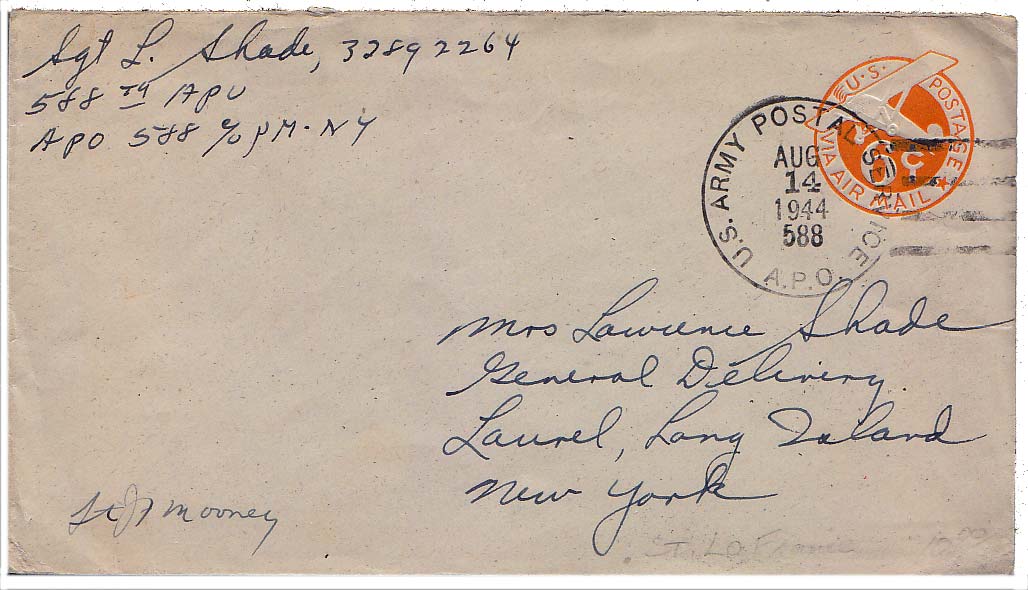 Sgt L. Shade, 32892264
588 TH APU
APO 588 c/o PM. NY
U.S. POSTAGE
VIA AIR MAIL
6 C
U.S. ARMY POSTAL SERVICE
AUG
14
1944
588
A.P.O.
Mrs Lawrence Shade
General Delivery
Laurel, Long Island
New York
Mooney
St. Lo France